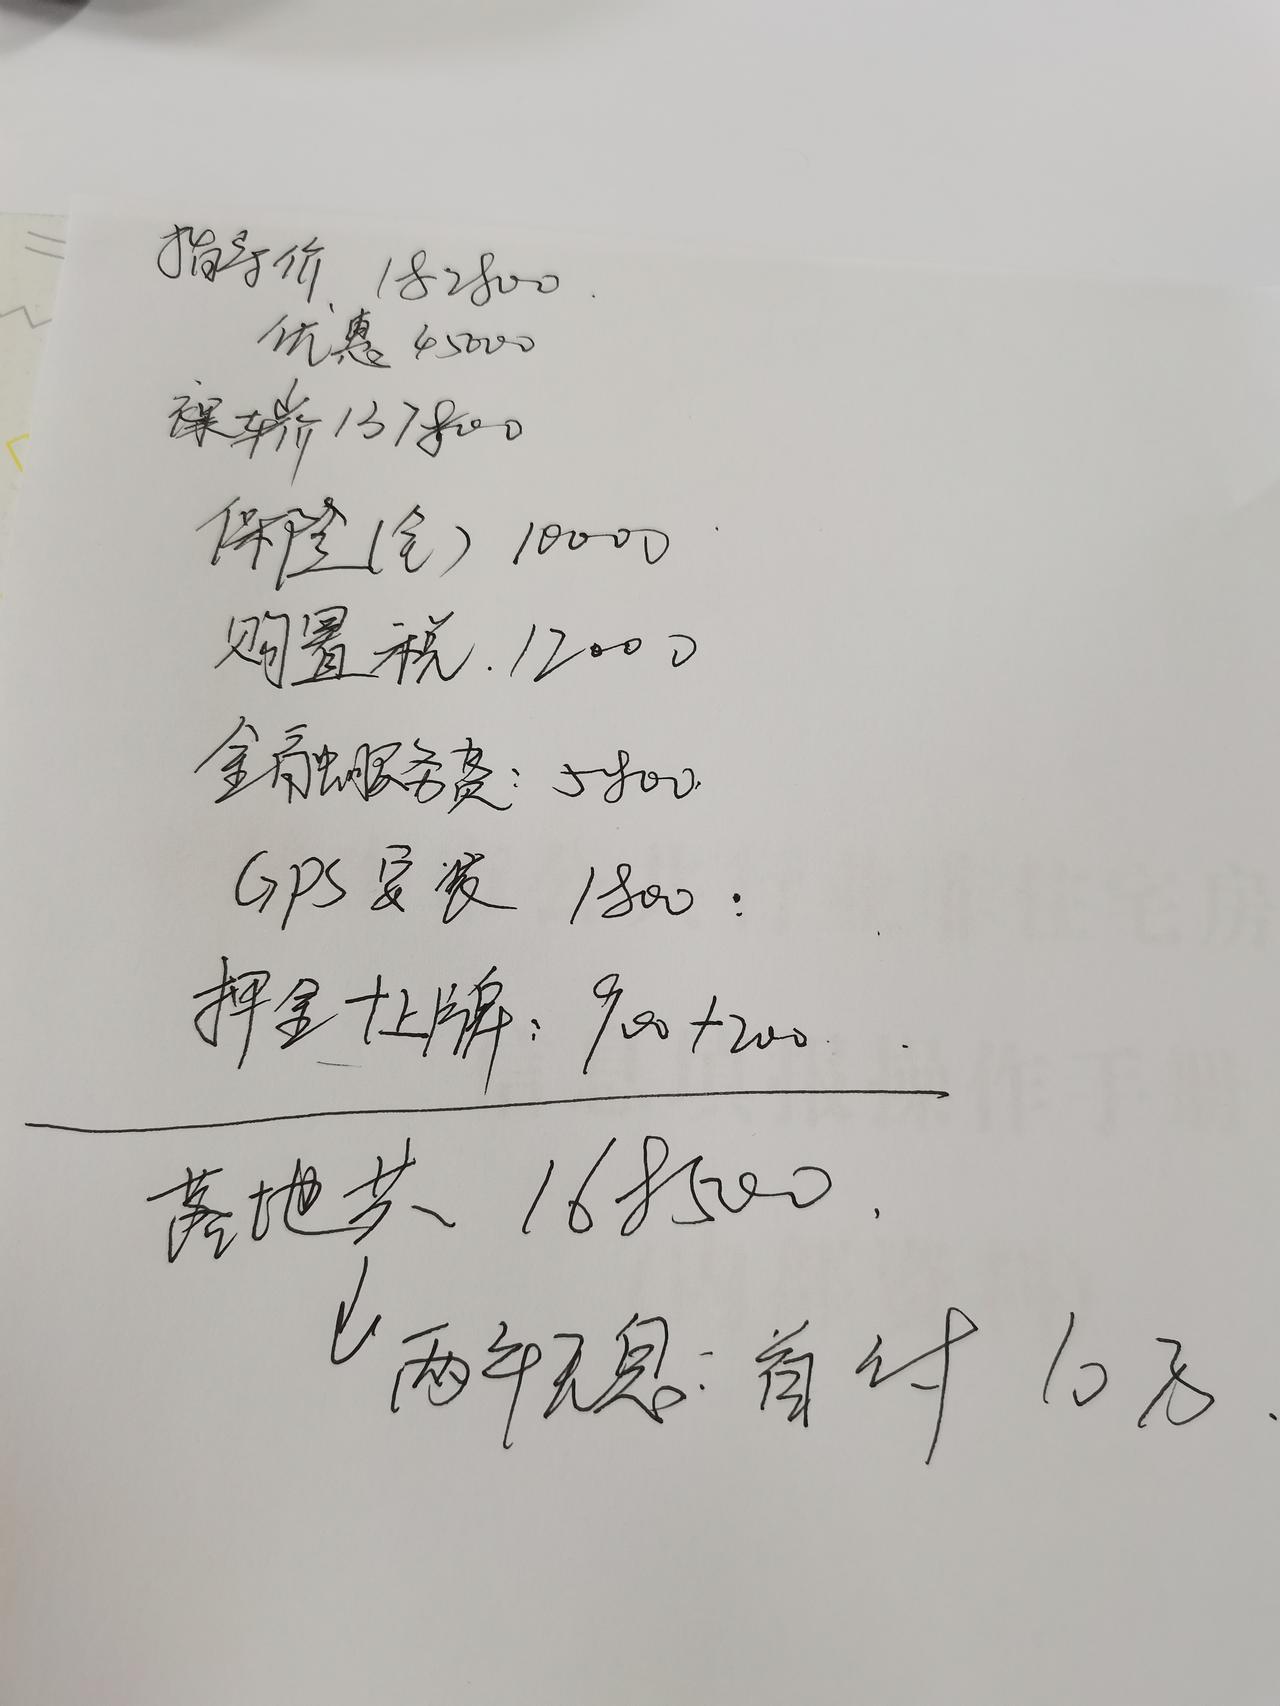 指导价 182800.
优惠 45000
裸车价 137800
保险(全) 10000
购置税. 12000
金融服务费: 5800.
GPS安装 1800:
押金+上牌: 900+200.
落地共 168500.
两年无息: 首付 10万.
住宅房
信息填报操作手册